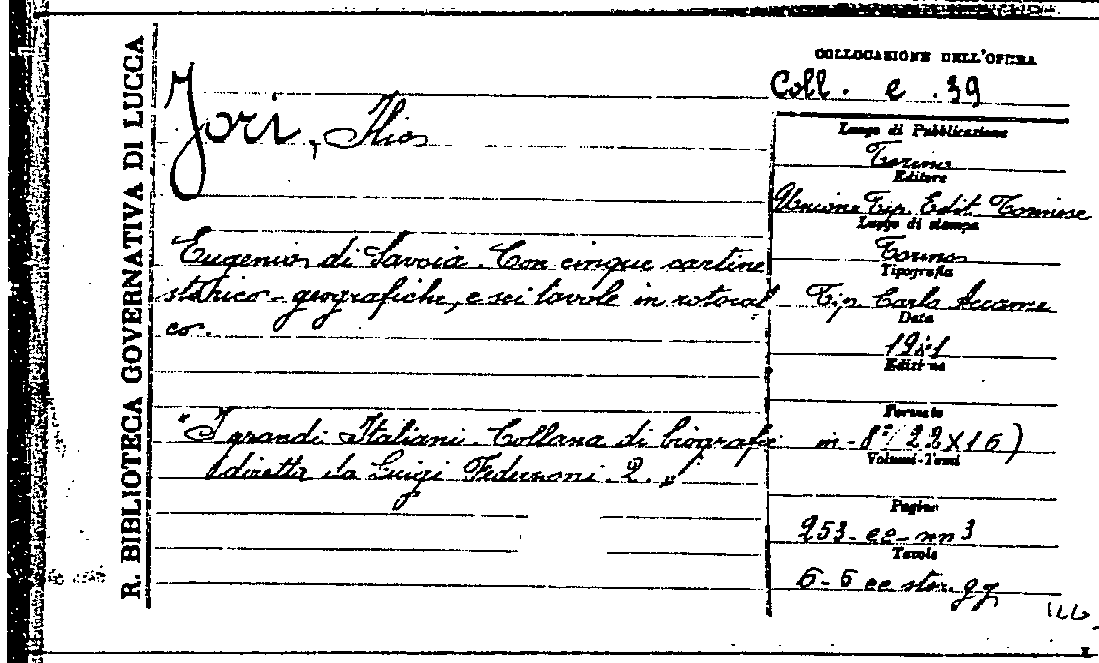 R. BIBLIOTECA GOVERNATIVA DI LUCCA
COLLOCAZIONE DELL'OPERA
Coll. e . 39
Jori, Ilios
Luogo di Pubblicazione
Torino
Editore
Unione Tip. Edit. Torinese
Luogo di stampa
Torino
Tipografia
Tip. Carlo Accame
Data
Edizione
Eugenio di Savoia. Con cinque cartine
storico-geografiche, e sei tavole in rotocal
co.
"I grandi Italiani. Collana di biografie
diretta da Luigi Federzoni. 2."
Formato
in-8° (22x16)
Volumi-Tomi
Pagine
253-cc-nn 3
Tavole
6-5 cc stor. gg